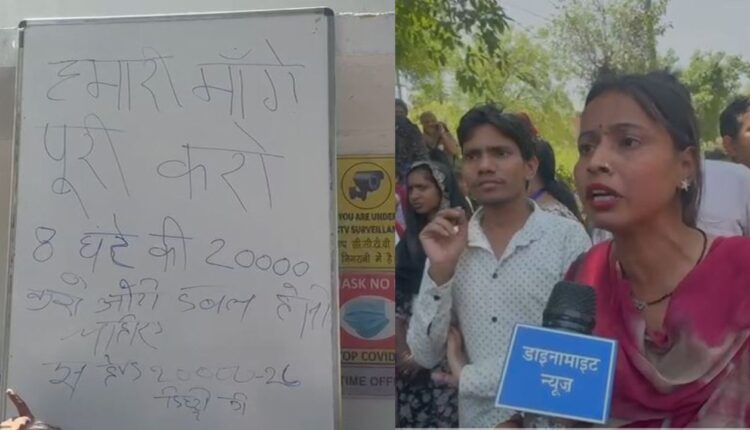 हमारी माँगे
पूरी करो
8 घंटे की 20000
करो
डबल होनी
चाहिए
20000-26
YOU ARE UNDER
CTV SURVEILL
निगरानी में है
ASK NO
TOP COVID
TIME OFF
डाइनामाइट
न्यूज़